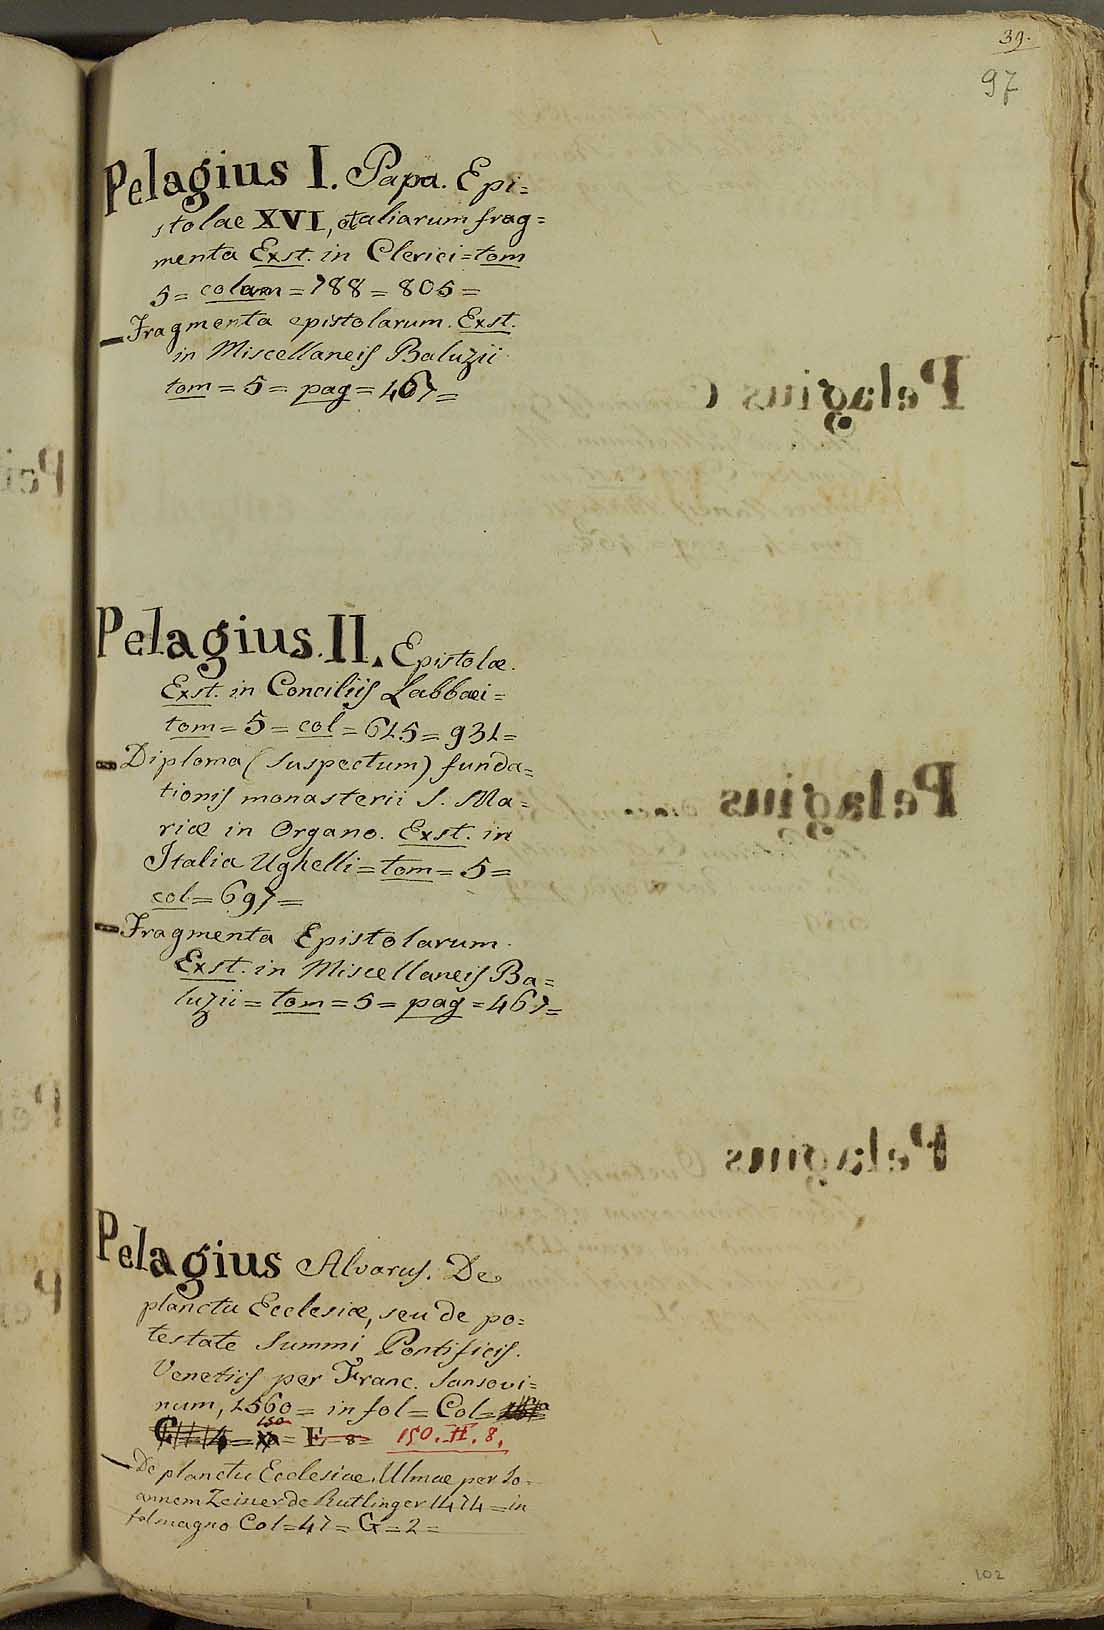 39.
97
Pelagius I. Papa. Epi=
stolae XVI, et aliarum frag=
menta Exst. in Clerici=tom
5= colum=788=805=
Fragmenta epistolarum. Exst.
in Miscellaneis Baluzii
tom=5=pag=467=
Pelagius II. Epistolæ.
Exst. in Conciliis Labbaei=
tom=5=col=615=931=
Diploma (suspectum) funda=
tionis monasterii S. Ma=
riæ in Organo. Exst. in
Italia Ughelli=tom=5=
col=697=
Fragmenta Epistolarum.
Exst. in Miscellaneis Ba=
luzii=tom=5=pag=467=
Pelagius Alvarus. De
planctu Ecclesiæ, seu de po=
testate Summi Pontificis.
Venetiis per Franc. Sansovi=
num, 1560=in fol=Col=
150
E=8= 150. II. 8.
De planctu Ecclesiae. Ulmae per Jo=
annem Zeiner de Rutlinger 1474=in
fol magno Col=47=G=2=
102